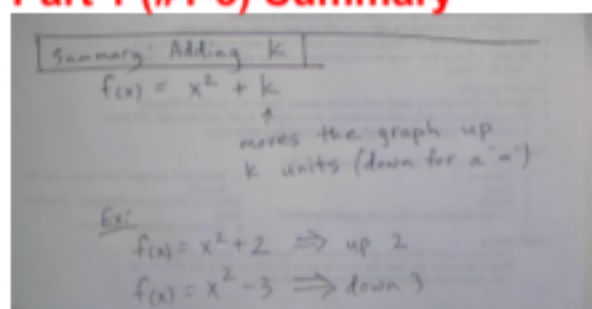 Part 1 (#1-3) Summary
Summary: Adding k
f(x) = x² + k
↑
moves the graph up
k units (down for a "-")
Ex:
f(x) = x² + 2 ⇒ up 2
f(x) = x² - 3 ⇒ down 3